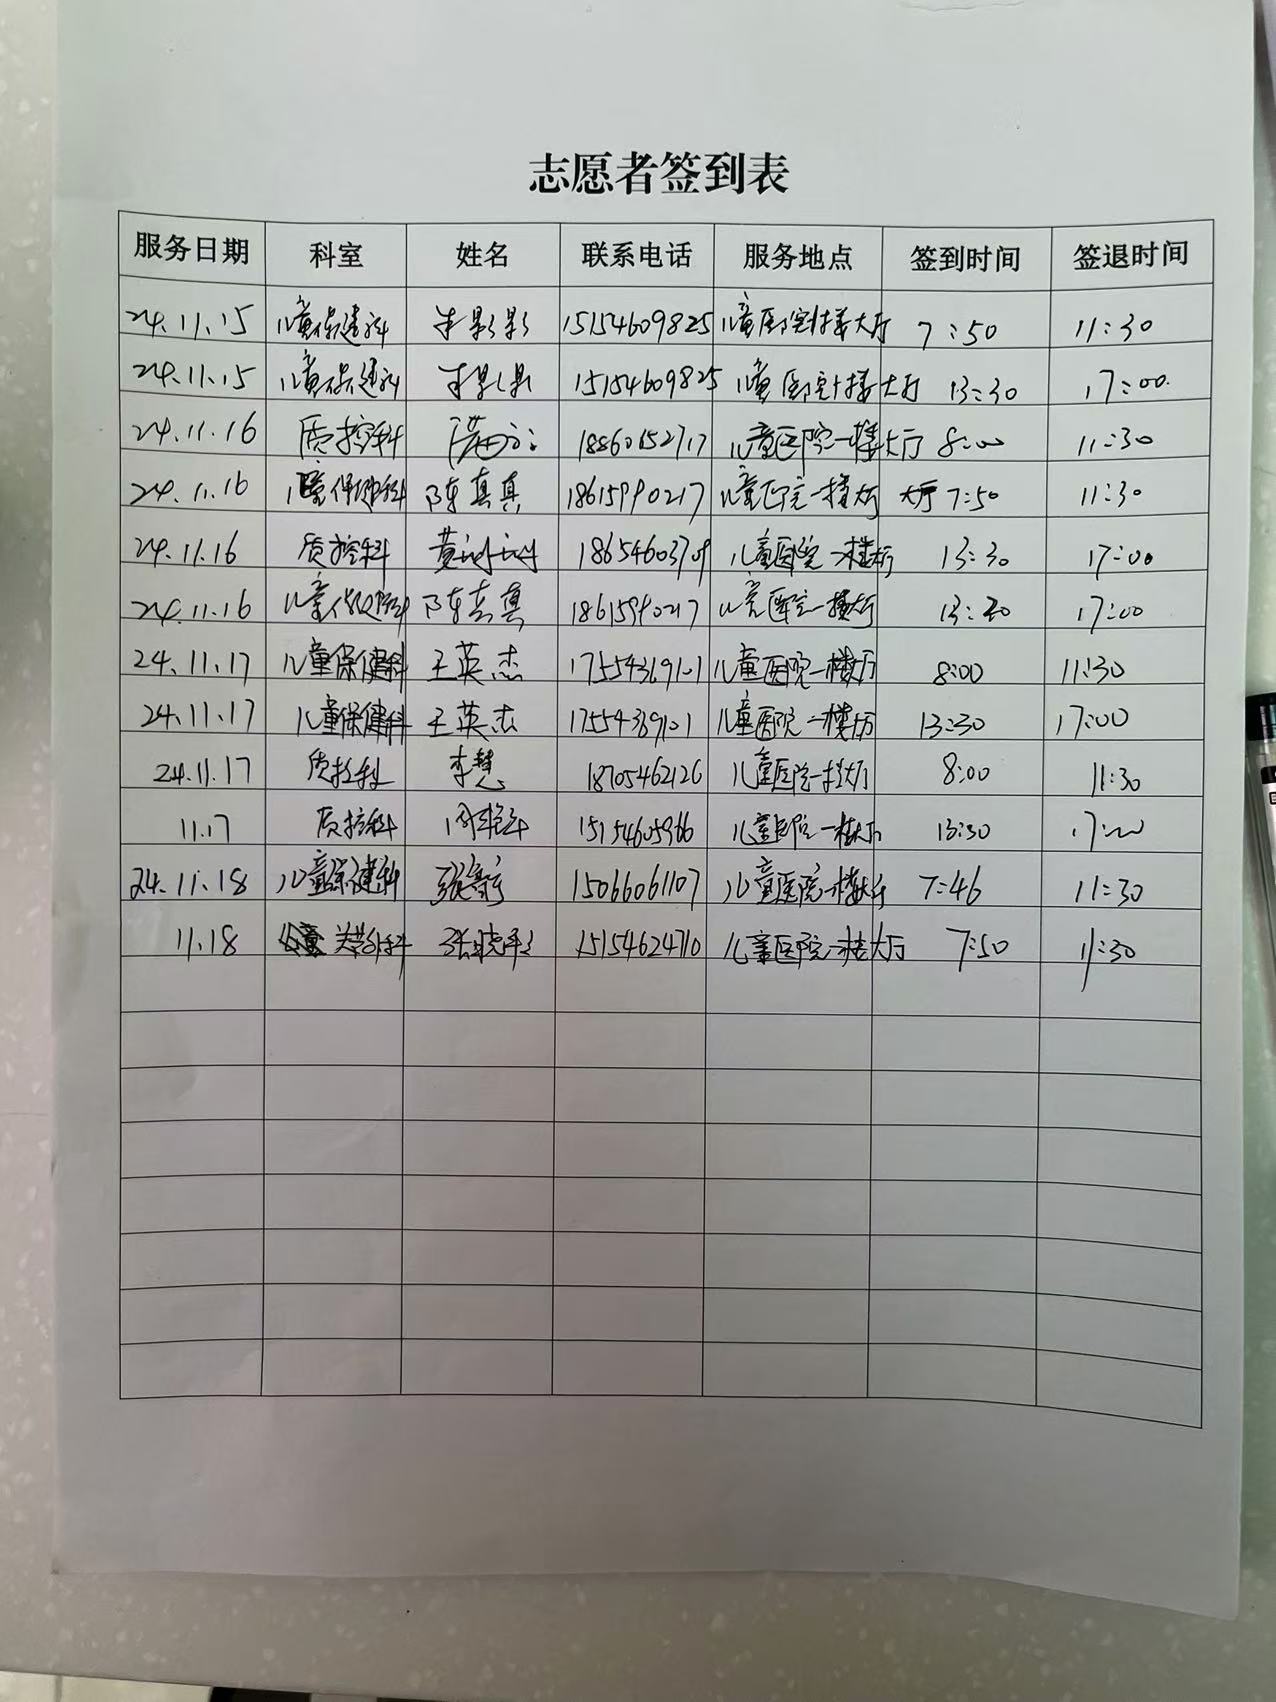 志愿者签到表
服务日期 科室 姓名 联系电话 服务地点 签到时间 签退时间
24.11.15 儿童保健科 影影 15154609825 儿童医院1楼大厅 7:50 11:30
24.11.15 儿童保健科 15154609825 儿童医院1楼大厅 13:30 17:00
24.11.16 质控科 18860152717 儿童医院一楼大厅 8:00 11:30
24.11.16 儿童保健科 陈真真 18615990217 儿童医院一楼大厅 大厅 7:50 11:30
24.11.16 质控科 黄 18654603709 儿童医院一楼大厅 13:30 17:00
24.11.16 儿童保健科 陈真真 18615990217 儿童医院一楼大厅 13:30 17:00
24.11.17 儿童保健科 王英杰 17554369101 儿童医院一楼大厅 8:00 11:30
24.11.17 儿童保健科 王英杰 17554369101 儿童医院一楼大厅 13:30 17:00
24.11.17 质控科 李慧 18705462126 儿童医院一楼大厅 8:00 11:30
11.17 质控科 15154605966 儿童医院一楼大厅 13:30 17:00
24.11.18 儿童保健科 张 15066061107 儿童医院一楼大厅 7:46 11:30
11.18 科 张晓彤 15154624710 儿童医院一楼大厅 7:50 11:30